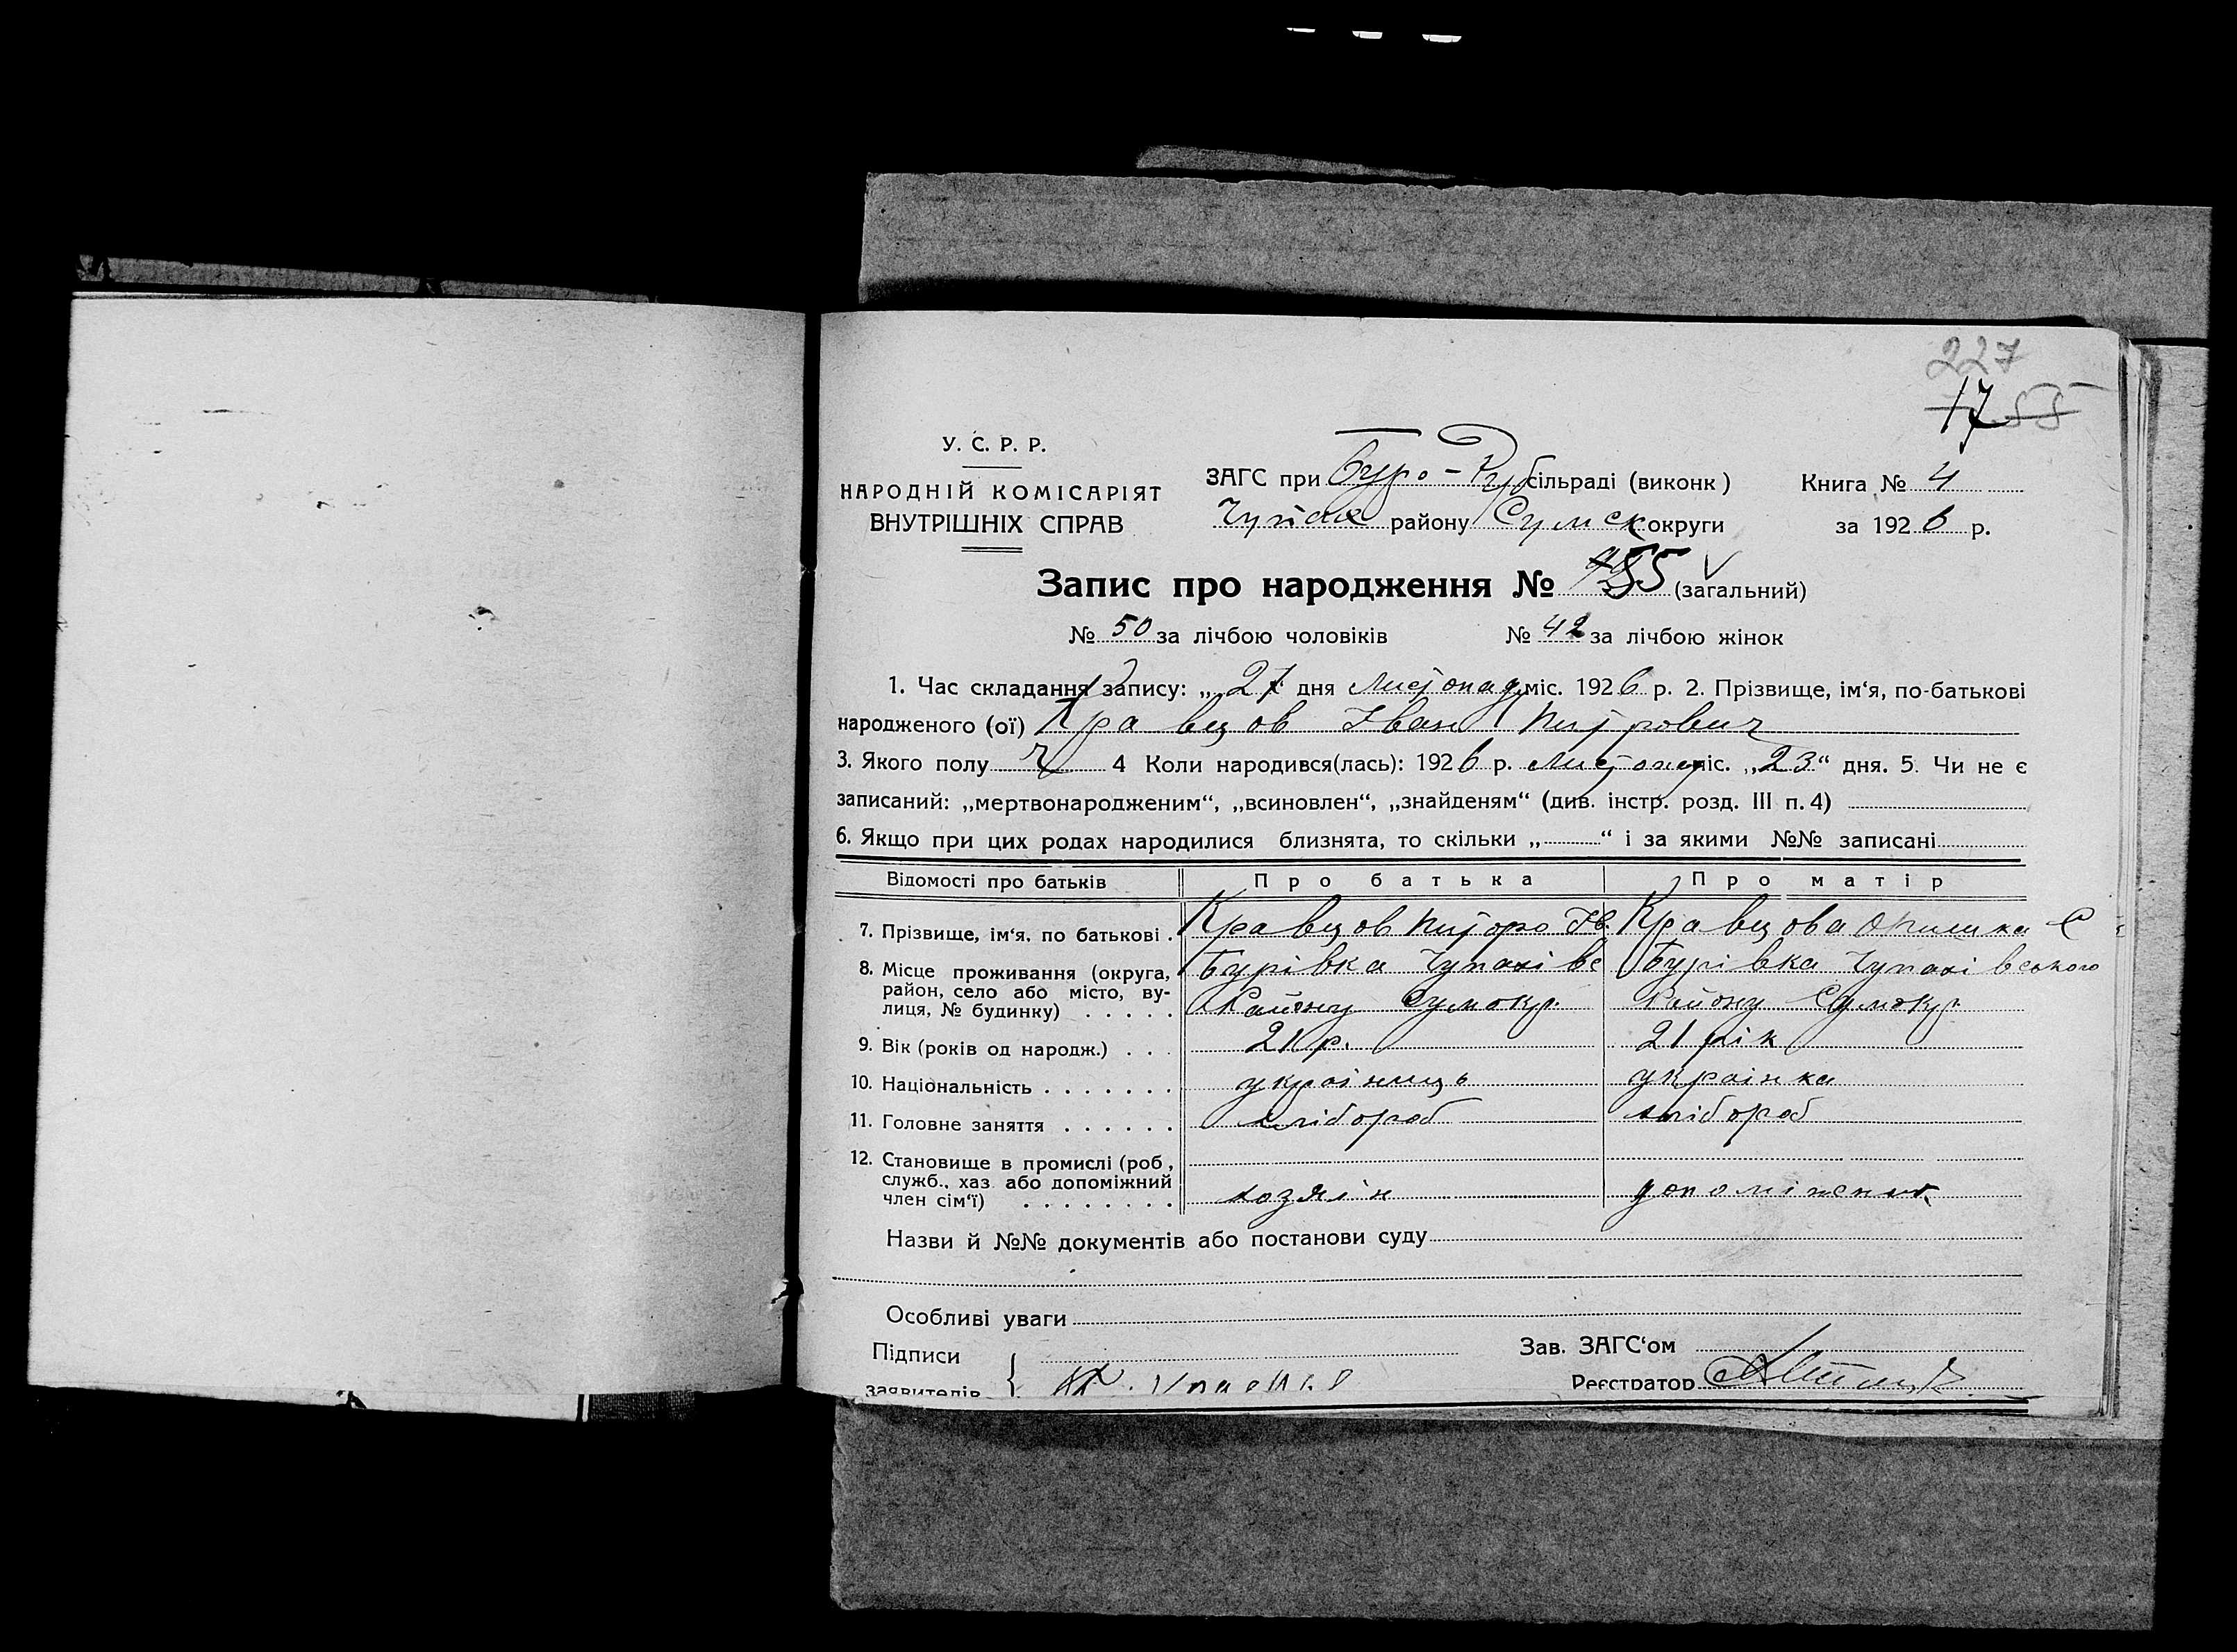 227
17 55
У. С. Р. Р.
НАРОДНІЙ КОМІСАРІЯТ
ВНУТРІШНІХ СПРАВ
ЗАГС при Буро-Руб сільраді (виконк)
Чупах району Сумск округи
Книга № 4
за 1926 р.
Запис про народження № 55 (загальний)
№ 50 за лічбою чоловіків № 42 за лічбою жінок
1. Час складання запису: „27 дня Листопад міс. 1926 р. 2. Прізвище, ім‘я, по-батькові
народженого (ої) Кравцов Іван Питрович
3. Якого полу ч 4 Коли народився(лась): 1926 р. Листопад міс. „23“ дня. 5. Чи не є
записаний: „мертвонародженим“, „всиновлен“, „знайденям“ (див. інстр. розд. III п. 4)
6. Якщо при цих родах народилися близнята, то скільки „ “ і за якими №№ записані
Відомості про батьків Про батька Про матір
7. Прізвище, ім‘я, по батькові . Кравцов Питро Ів. Кравцова Опишка С
8. Місце проживання (округа, Бурівка Чупахівс Бурівка Чупахівського
район, село або місто, ву-
лиця, № будинку) . . . . . Району Сумокр. Району Сумокр.
9. Вік (років од народж.) . . . 21 р. 21 рік
10. Національність . . . . . . . українець українка
11. Головне заняття . . . . . . хлібороб хлібороб
12. Становище в промислі (роб,
служб., хаз або допоміжний
член сім‘ї) . . . . . . . . хозяін допоміжник
Назви й №№ документів або постанови суду
Особливі уваги
Підписи
заявителів
Зав. ЗАГС‘ом
Реєстратор